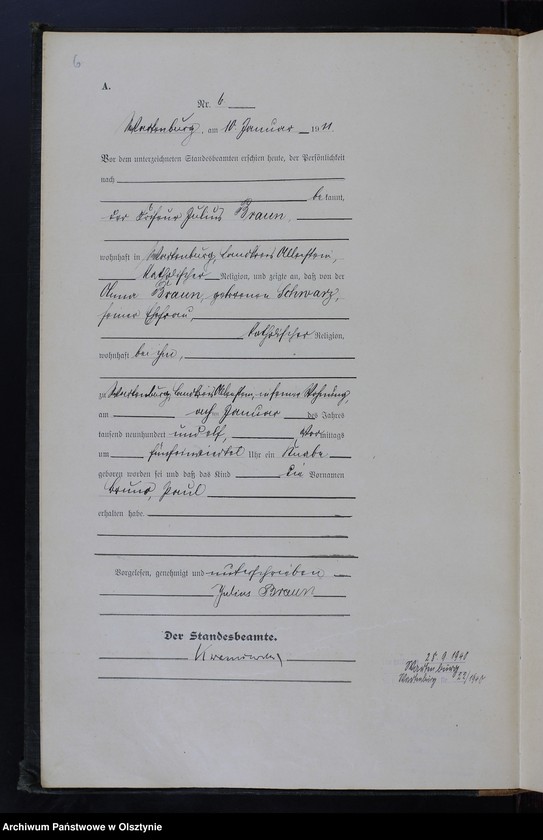 6
A.
Nr. 6
Wartenburg, am 10. Januar 1911.
Vor dem unterzeichneten Standesbeamten erschien heute, der Persönlichkeit
nach
bekannt,
der Friseur Julius Braun,
wohnhaft in Wartenburg, Landkreis Allenstein,
katholischer Religion, und zeigte an, daß von der
Anna Braun, geborenen Schwarz,
seiner Ehefrau,
katholischer Religion,
wohnhaft bei ihm,
zu Wartenburg, Landkreis Allenstein, in seiner Wohnung,
am Januar des Jahres
tausend neunhundert und elf, Vormittags
um Uhr ein Knabe
geboren worden sei und daß das Kind die Vornamen
Bruno, Paul
erhalten habe.
Vorgelesen, genehmigt und unterschrieben
Julius Braun
Der Standesbeamte.
Wartenburg
Wartenburg
Archiwum Państwowe w Olsztynie